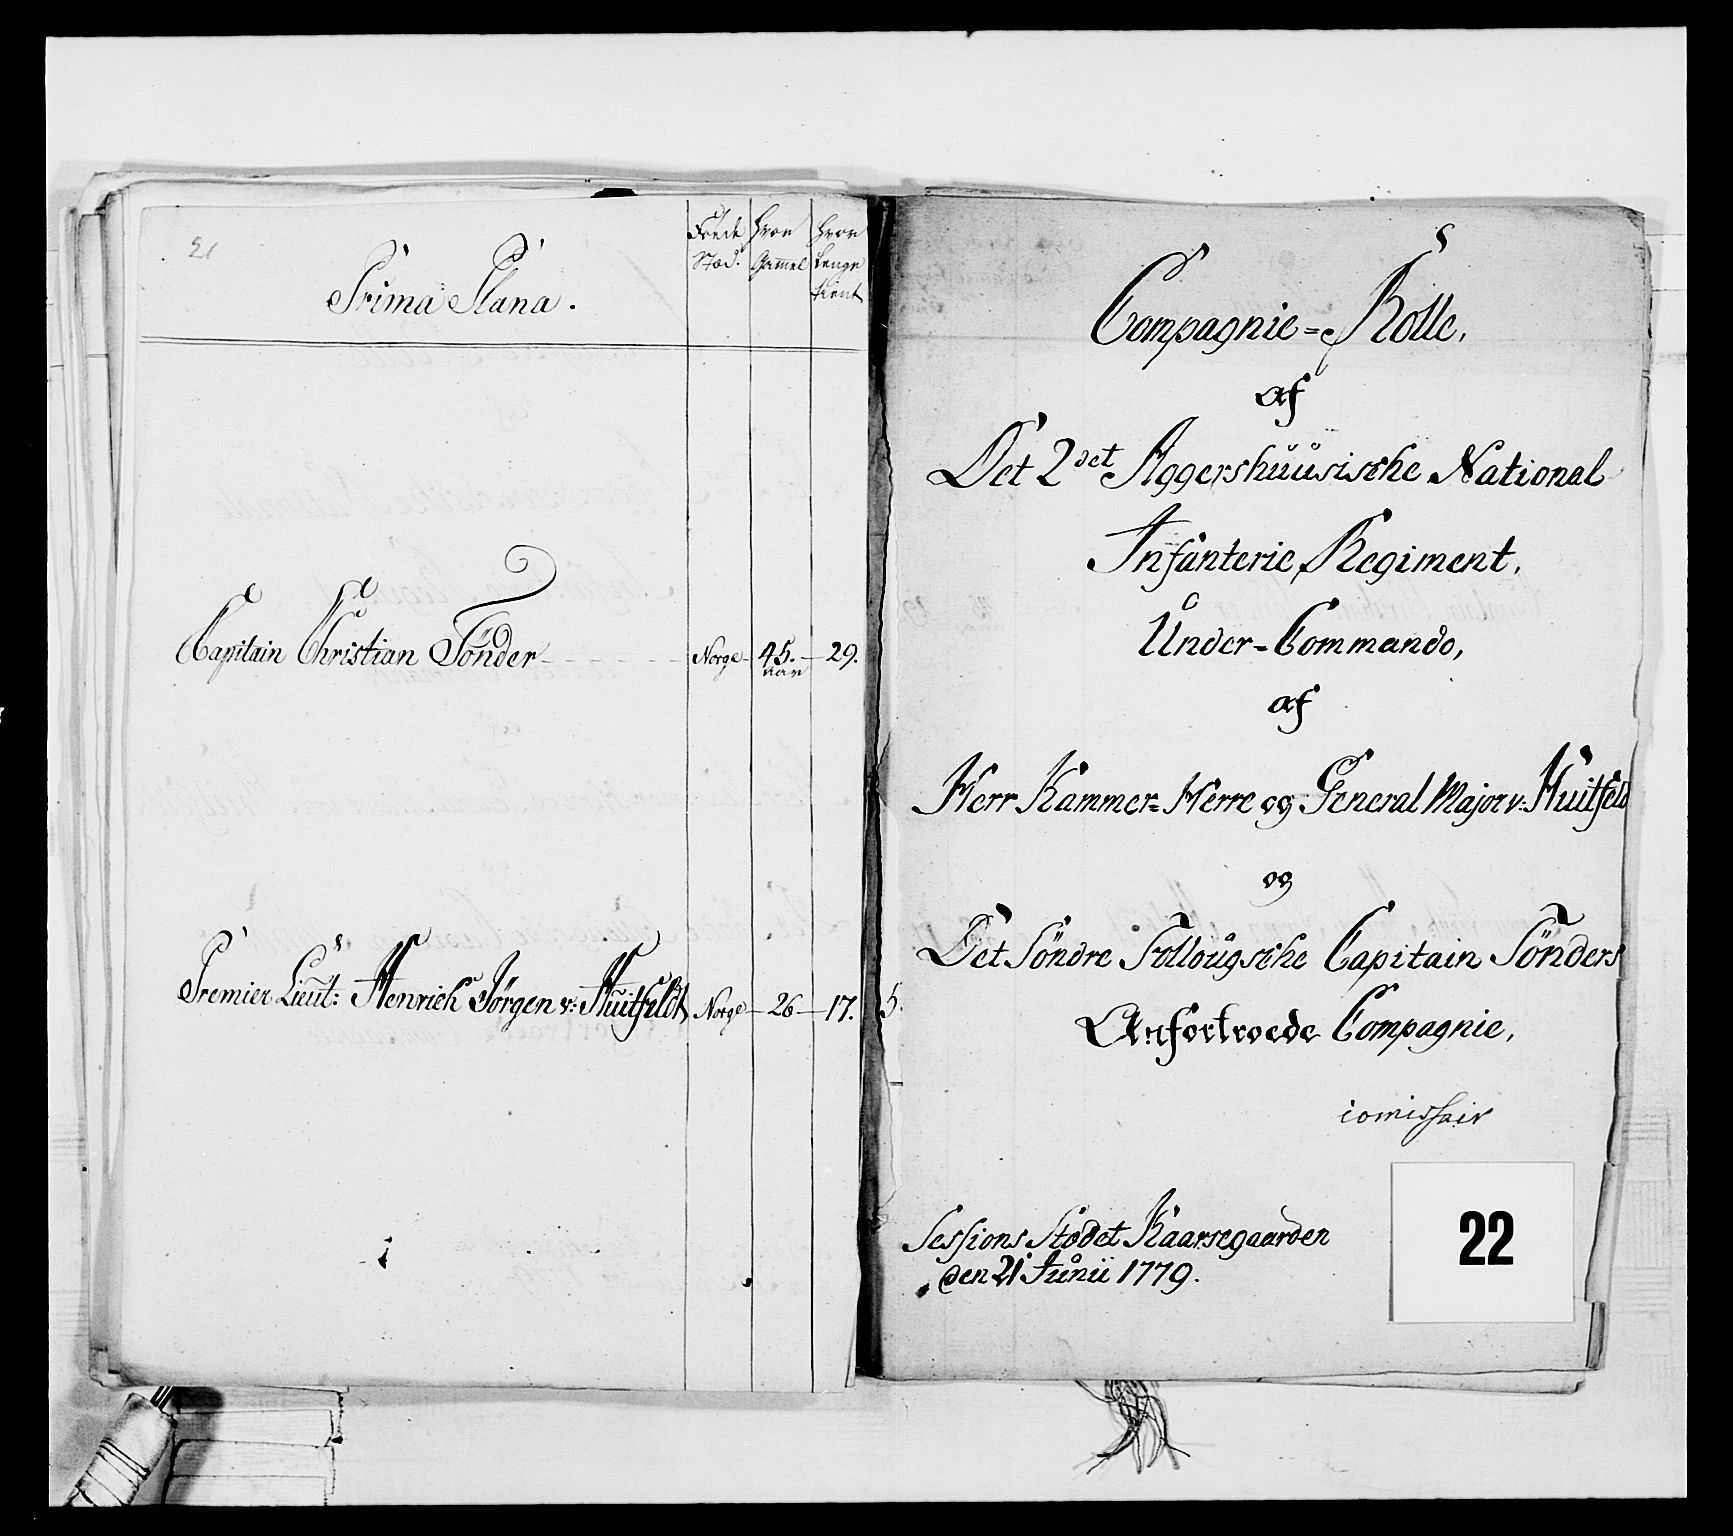 21
Prima Plana.
Föede Hvor Hvor
Stæd. Gammel Lenge
tient
Capitain Christian Tönder Norge 45. 29.
Aar
Premier Lieut: Henrich Jörgen v: Huitfeldt Norge 26 17. 5.
Compagnie=Rolle,
af
Det 2det Aggershuusische National
Infanterie Regiment,
Under=Commando,
af
Herr Kammer=Herre og General Major v: Huitfeld
og
Det Söndre Follougsche Capitain Tönders
Anfortroede Compagnie,
comissair
Sessions Stedet Kaarsegaarden
den 21 Junii 1779.
22